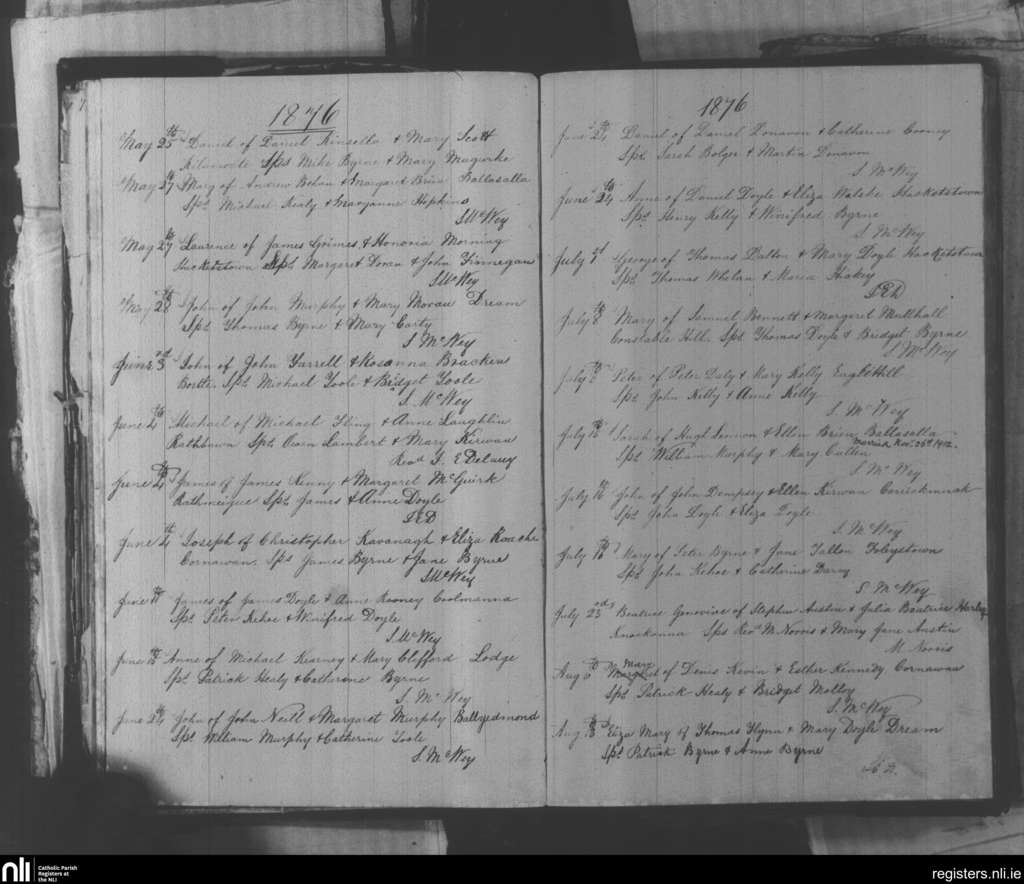 1876
May 25th Daniel of Daniel Kinsella & Mary Scott
Kilamoate Sps Mike Byrne & Mary Maguirke
May 27th Mary of Andrew Behan & Margaret Brien Ballasalla
Sps Michael Healy & Maryanne Hopkins
S McWey
May 27th Laurence of James Grimes & Honoria Morning
Hacketstown Sps Margaret Doran & John Finnegan
S McWey
May 28th John of John Murphy & Mary Moran Dream
Sps Thomas Byrne & Mary Carty
S McWey
June 3rd John of John Farrell & Rosanna Bracken
Sps Michael Toole & Bridget Toole
S. McWey
June 4th Michael of Michael Fling & Anne Laughlin
Rathbawn Sps Owen Lambert & Mary Kirwan
Revd J. E Delany
June 4th James of James Kenny & Margaret McGuirk
Rathmeigue Sps James & Anne Doyle
JED
June 4th Joseph of Christopher Kavanagh & Eliza Roache
Cornawan. Sps James Byrne & Jane Byrne
S McWey
June 11th James of James Doyle & Anne Rooney Coolmanna
Sps Peter Kehoe & Winifred Doyle
S McWey
June 18th Anne of Michael Kearney & Mary Clifford Lodge
Sps Patrick Healy & Catherine Byrne
S. McWey
June 24th John of John Neill & Margaret Murphy Ballyedmond
Sps William Murphy & Catherine Toole
S. McWey
1876
June 24th Daniel of Daniel Donavon & Catherine Cooney
Sps Sarah Bolger & Martin Donavon
S McWey
June 24th Anne of Daniel Doyle & Eliza Walshe Hacketstown
Sps Henry Kelly & Winifred Byrne
S McWey
July 1st George of Thomas Dalton & Mary Doyle Hacketstown
Sps Thomas Whelan & Maria
JED
July 8th Mary of Samuel Bennett & Margaret Mullhall
Constable Hill. Sps Thomas Doyle & Bridget Byrne
S McWey
July Peter of Peter Daly & Mary Kelly Eagle Hill
Sps John Kelly & Anne Kelly
S. McWey
July 16th Sarah of Hugh Lennon & Ellen Brien Ballasalla
Married Nov. 25th 1912.
Sps William Murphy & Mary Cullen
S McWey
July 16th John of John Dempsey & Ellen Kirwan
Sps John Doyle & Eliza Doyle
S. McWey
July 18th Mary of Peter Byrne & Jane Fallon Foleystown
Sps John Kehoe & Catherine Darcy
S McWey
July 23rd Beatrice Genovive of Stephen Austin & Julia Beatrice Harley
Knockanna Sps Revd M. Norris & Mary Jane Austin
M. Norris
Mary
Aug 6th Margaret of Denis Kevin & Esther Kennedy Cornawan
Sps Patrick Healy & Bridget Molloy
S. McWey
Aug 13th Eliza Mary of Thomas Flynn & Mary Doyle Dream
Sps Patrick Byrne & Anne Byrne
nli Catholic Parish
Registers at
the NLI
registers.nli.ie